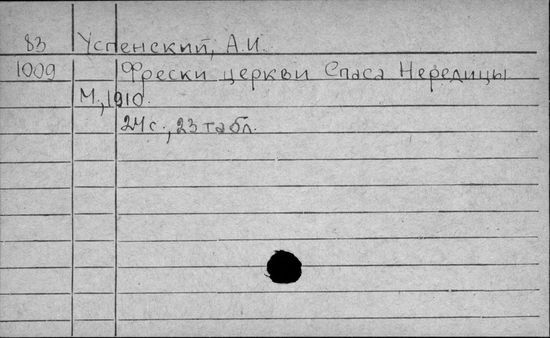 83 Успенский, А.И.
1009 Фрески церкви Спаса Нередицы
М., 1910.
24с., 23 табл.